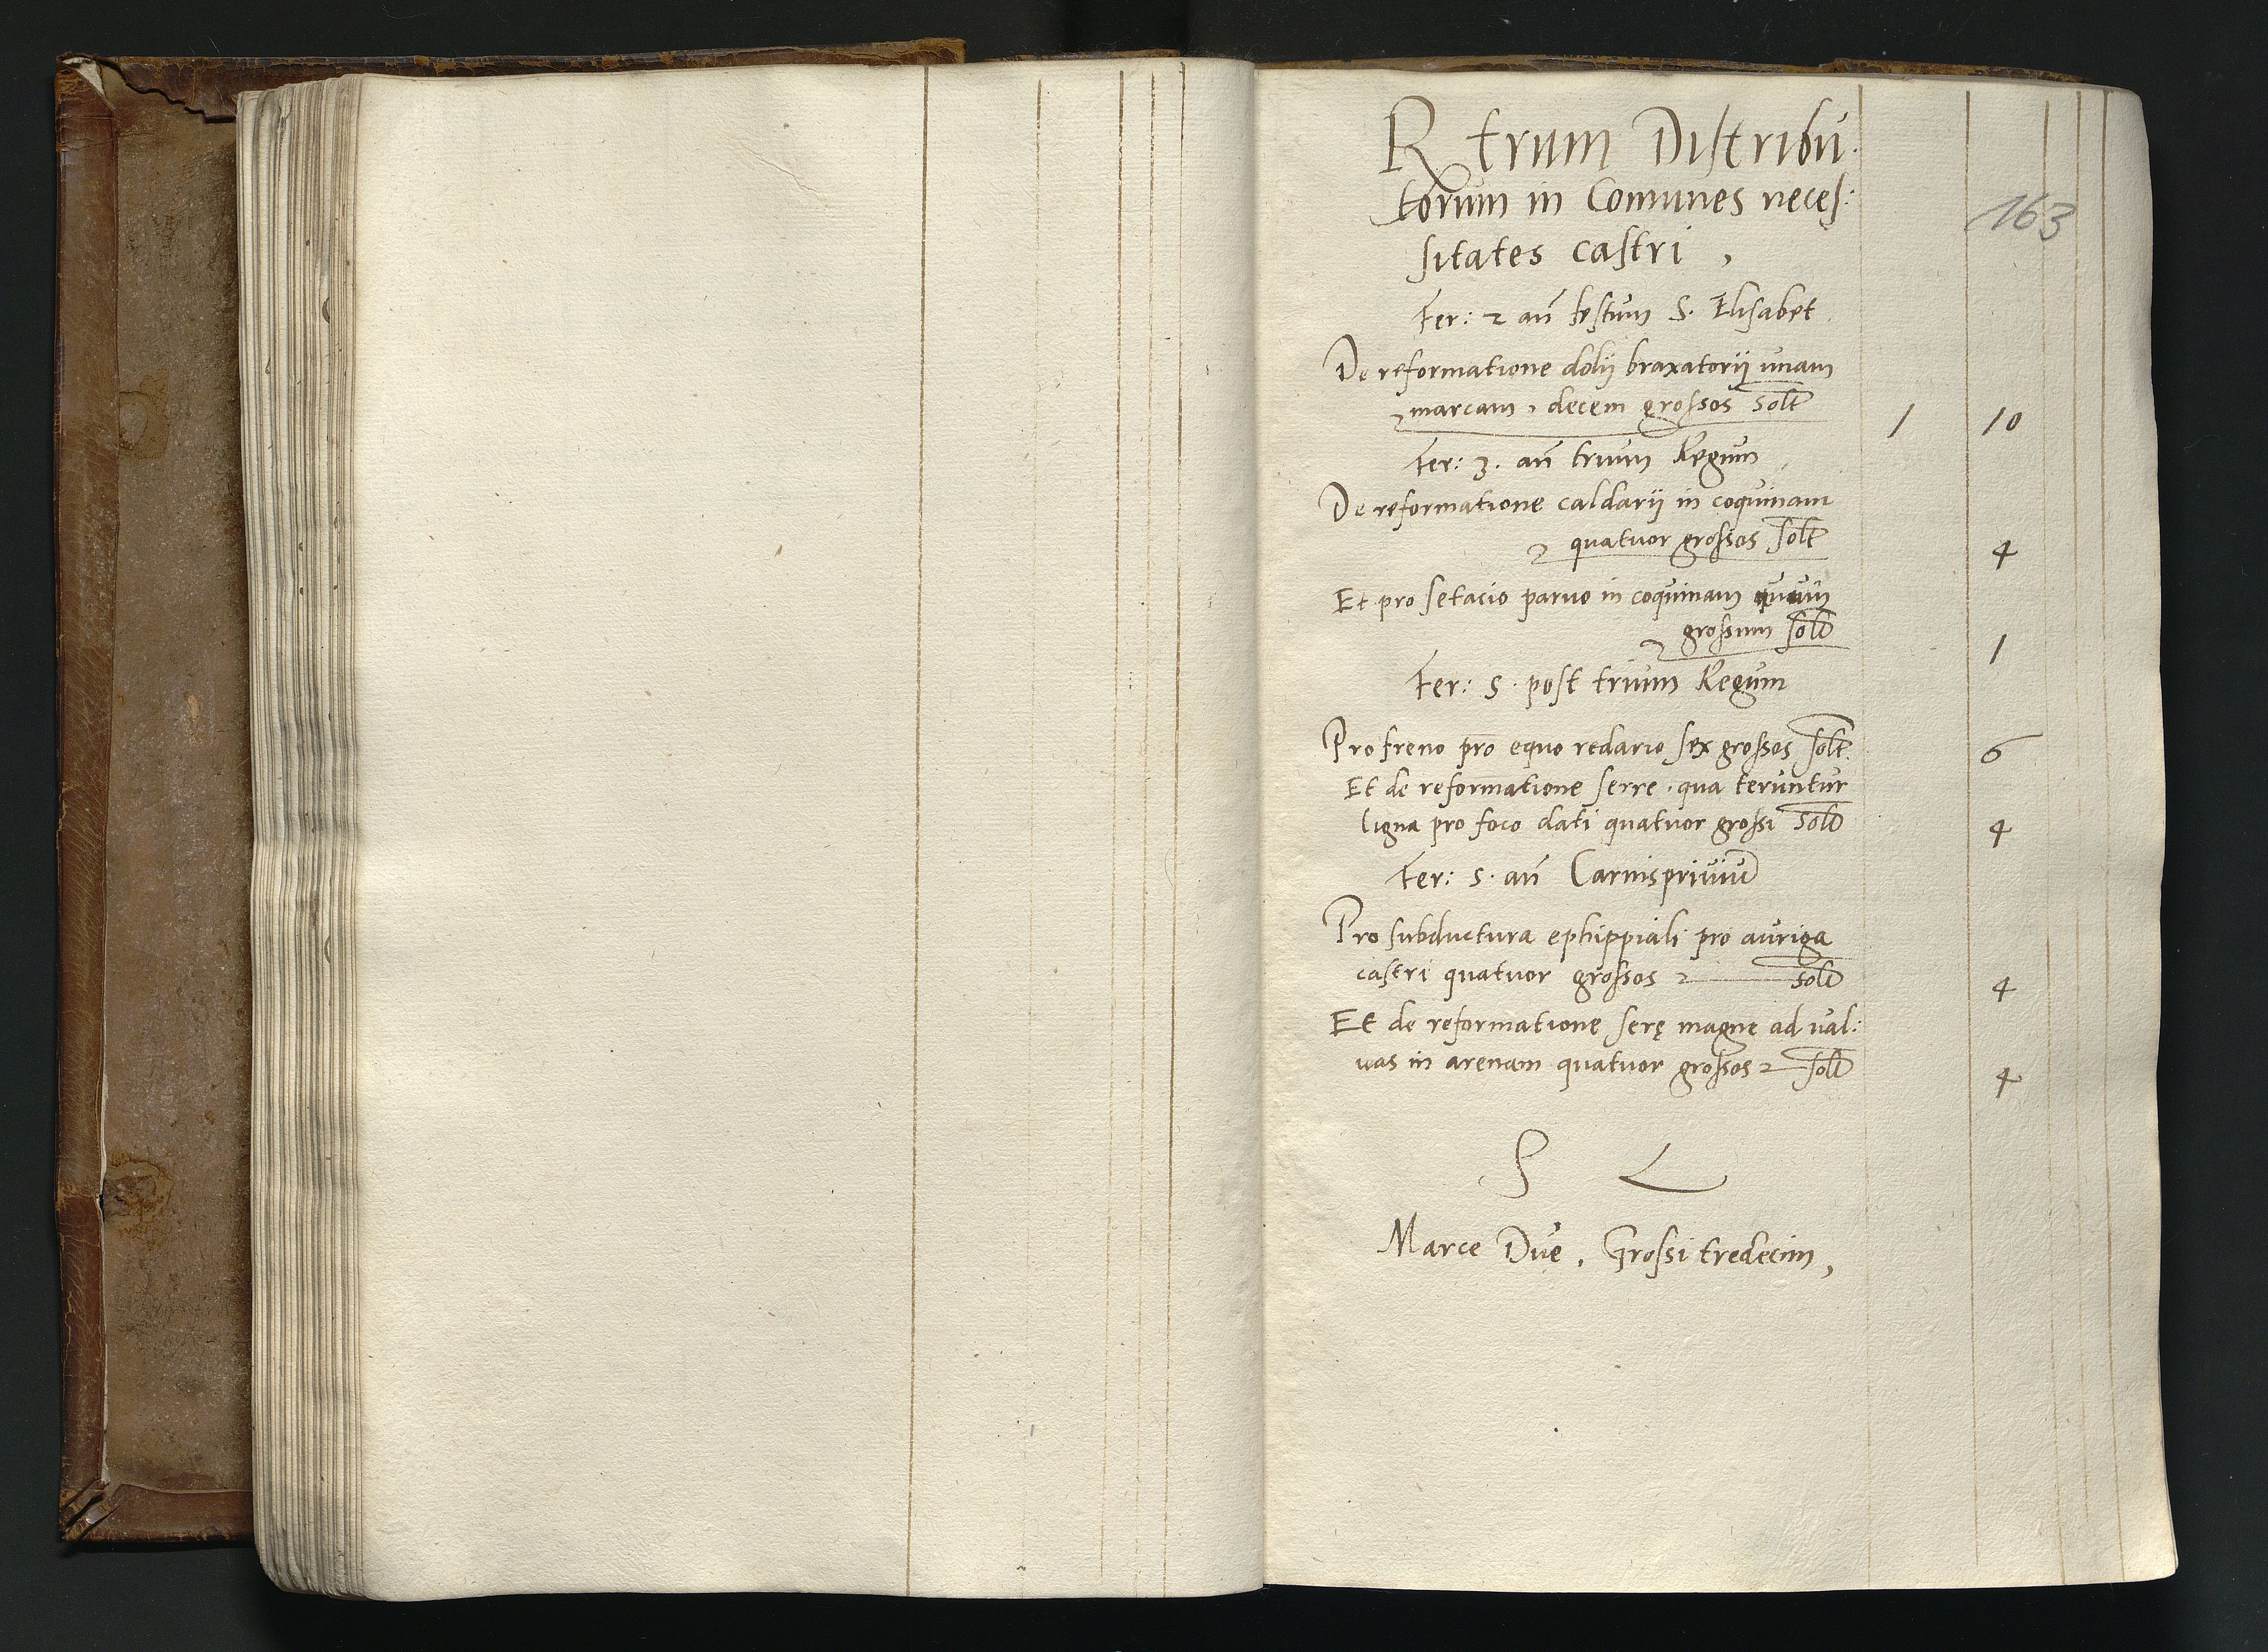 R trum Distribu
torum in Comunes neces:
sitates castri,
163
Fer: 2 an̄ festum S. Elisabet
De reformatione dolij braxatorij unam
marcam, decem grossos solt 1 10
Fer: 3. an̄ trium Regum
De reformatione caldarij in coquinam
quatuor grossos solt 4
Et pro setacio paruo in coquinam
grossum solt 1
Fer: 5. post trium Regum
Pro freno pro equo redario sex grossos solt 6
Et de reformatione serre, qua teruntur
ligna pro foco dati quatuor grossi solt 4
Fer: 5. an̄ Carnispriuiū
Pro subductura ephippiali pro auriga
castri quatuor grossos solt 4
Et de reformatione serę magne ad val:
uas in arenam quatuor grossos solt 4
S L
Marce Due, Grossi tredecim,